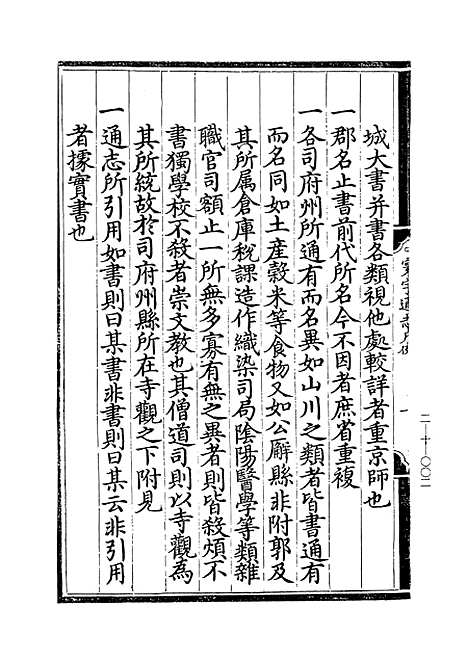 城大書并書各類視他處較詳者重京師也
一郡名止書前代所名今不因者庶省重複
一各司府州所通有而名異如山川之類者皆書通有
而名同如土產穀米等食物又如公廨縣非附郭及
其所属倉庫稅課造作織染司局陰陽醫學等類雜
職官司額止一所無多寡有無之異者則皆殺煩不
書獨學校不殺者崇文教也其僧道司則以寺觀為
其所統故於司府州縣所在寺觀之下附見
一通志所引用如書則曰某書非書則曰某云非引用
者據實書也
寰宇通志凡例
二
二-一〇〇二